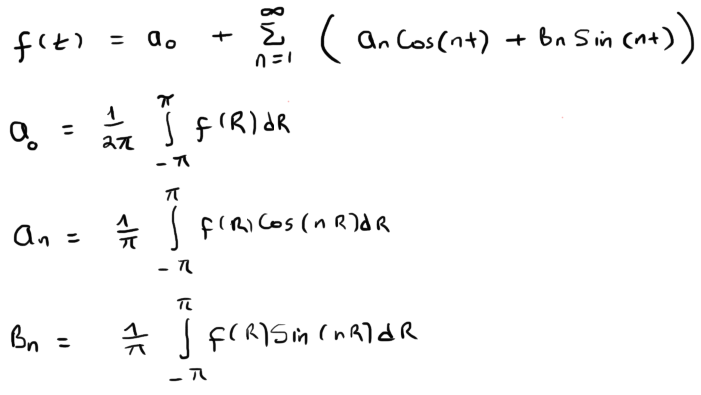 f(t) = a₀ + ∑_{n=1}^{∞} ( an Cos(nt) + Bn Sin(nt) )
a₀ = 1/2π ∫_{-π}^{π} f(R)dR
an = 1/π ∫_{-π}^{π} f(R) Cos(nR)dR
Bn = 1/π ∫_{-π}^{π} f(R) Sin(nR)dR